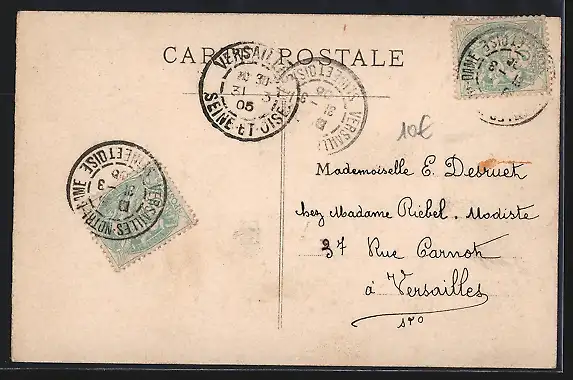 CARTE POSTALE
VERSAILLES
20 30
31 3
05
SEINE-ET-OISE
10€
Mademoiselle E. Desruet
chez Madame Riebel. Modiste
37 Rue Carnot
à Versailles
VERSAILLES-NOTRE-DAME
SEINE ET OISE